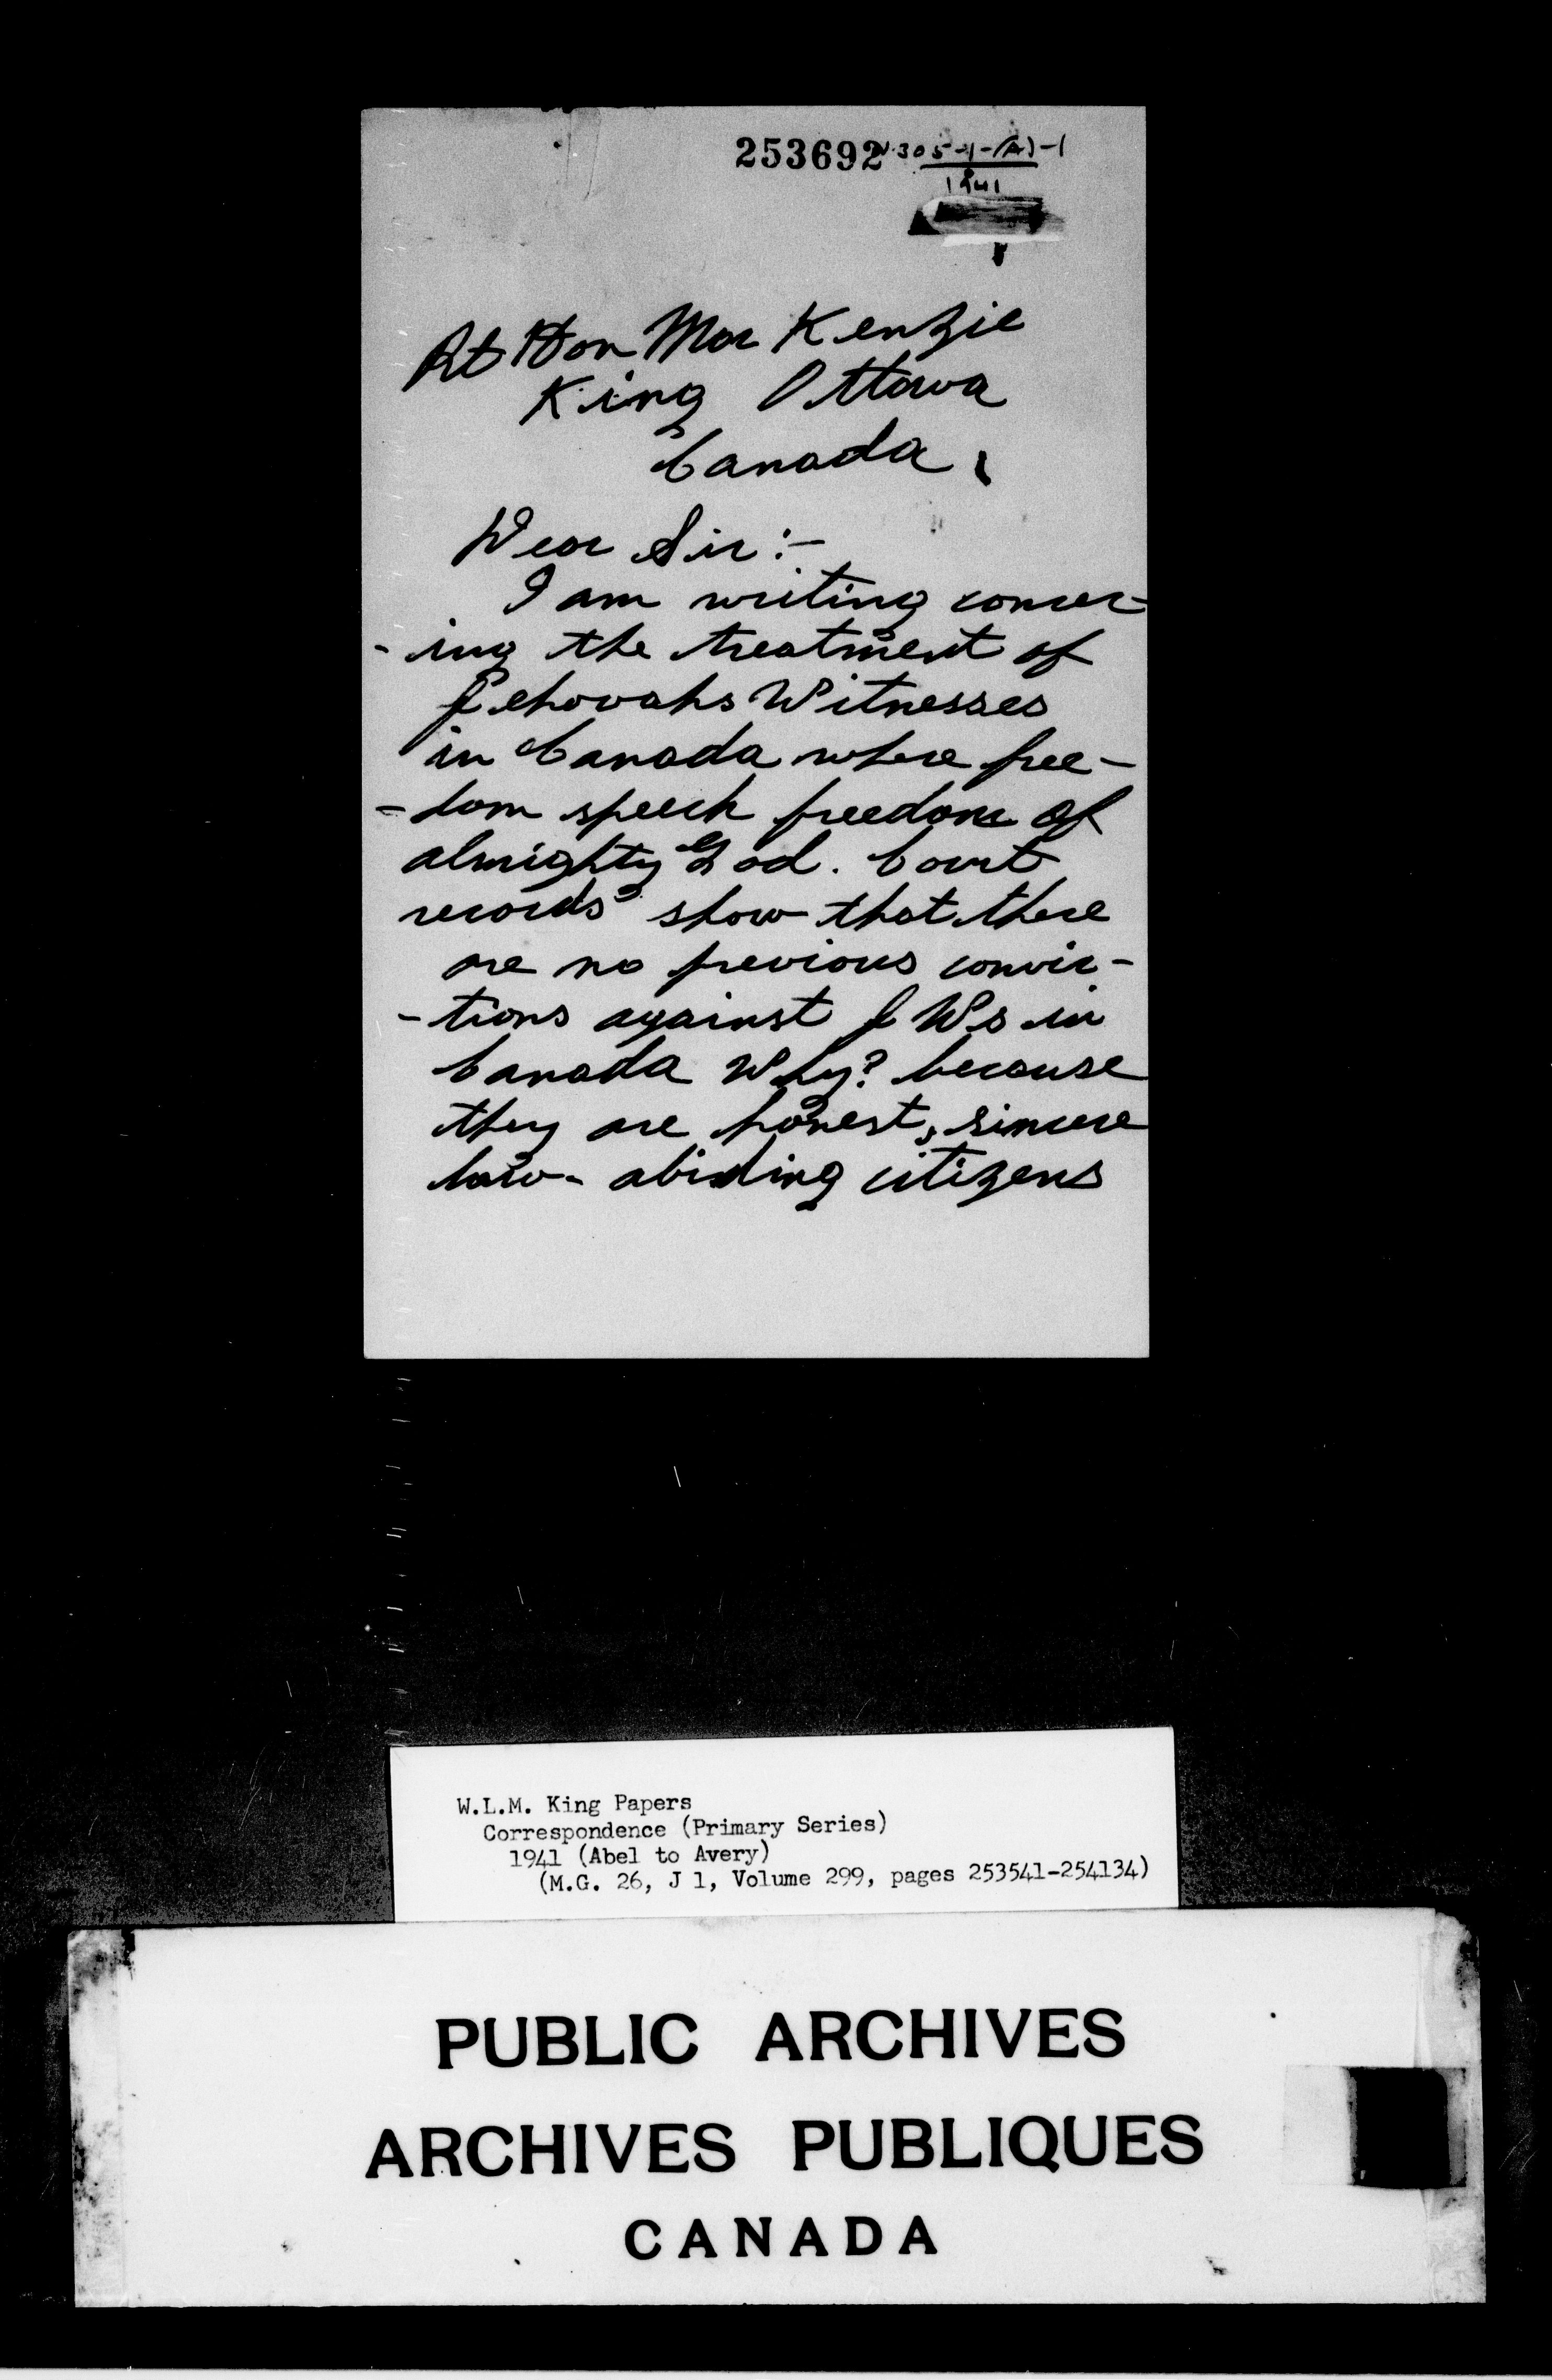 253692 N-305-1-(A)-1
1941
Rt Hon Mac Kenzie
King Ottawa
Canada,
Dear Sir :-
I am writing concer-
-ing the treatment of
Jehovahs Witnesses
in Canada where free-
-dom speech freedom of
almighty God. Court
records show that there
are no previous convic-
-tions against J Ws in
Canada Why? because
they are honest, sincere
law-abiding citizens
W.L.M. King Papers
Correspondence (Primary Series)
1941 (Abel to Avery)
(M.G. 26, J 1, Volume 299, pages 253541-254134)
PUBLIC ARCHIVES
ARCHIVES PUBLIQUES
CANADA